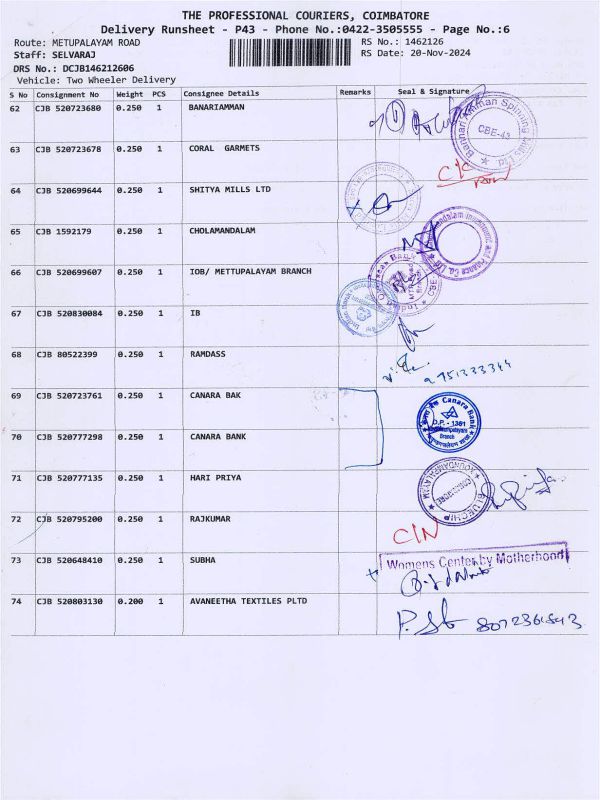 THE PROFESSIONAL COURIERS, COIMBATORE
Delivery Runsheet - P43 - Phone No.:0422-3505555 - Page No.:6
Route: METUPALAYAM ROAD RS No.: 1462126
Staff: SELVARAJ RS Date: 20-Nov-2024
DRS No.: DCJB146212606
Vehicle: Two Wheeler Delivery
S No Consignment No Weight PCS Consignee Details Remarks Seal & Signature
62 CJB 520723680 0.250 1 BANARIAMMAN
Bannari Amman Spinning Mills Ltd
CBE-43
63 CJB 520723678 0.250 1 CORAL GARMETS
64 CJB 520699644 0.250 1 SHITYA MILLS LTD
65 CJB 1592179 0.250 1 CHOLAMANDALAM
66 CJB 520699607 0.250 1 IOB/ METTUPALAYAM BRANCH
67 CJB 520830084 0.250 1 IB
68 CJB 80522399 0.250 1 RAMDASS
69 CJB 520723761 0.250 1 CANARA BAK
Canara Bank
D.P. - 1361
Branch
70 CJB 520777298 0.250 1 CANARA BANK
71 CJB 520777135 0.250 1 HARI PRIYA
BLUECHIP
COIMBATORE
72 CJB 520795200 0.250 1 RAJKUMAR
C/N
73 CJB 520648410 0.250 1 SUBHA
Womens Center by Motherhood
74 CJB 520803130 0.200 1 AVANEETHA TEXTILES PLTD